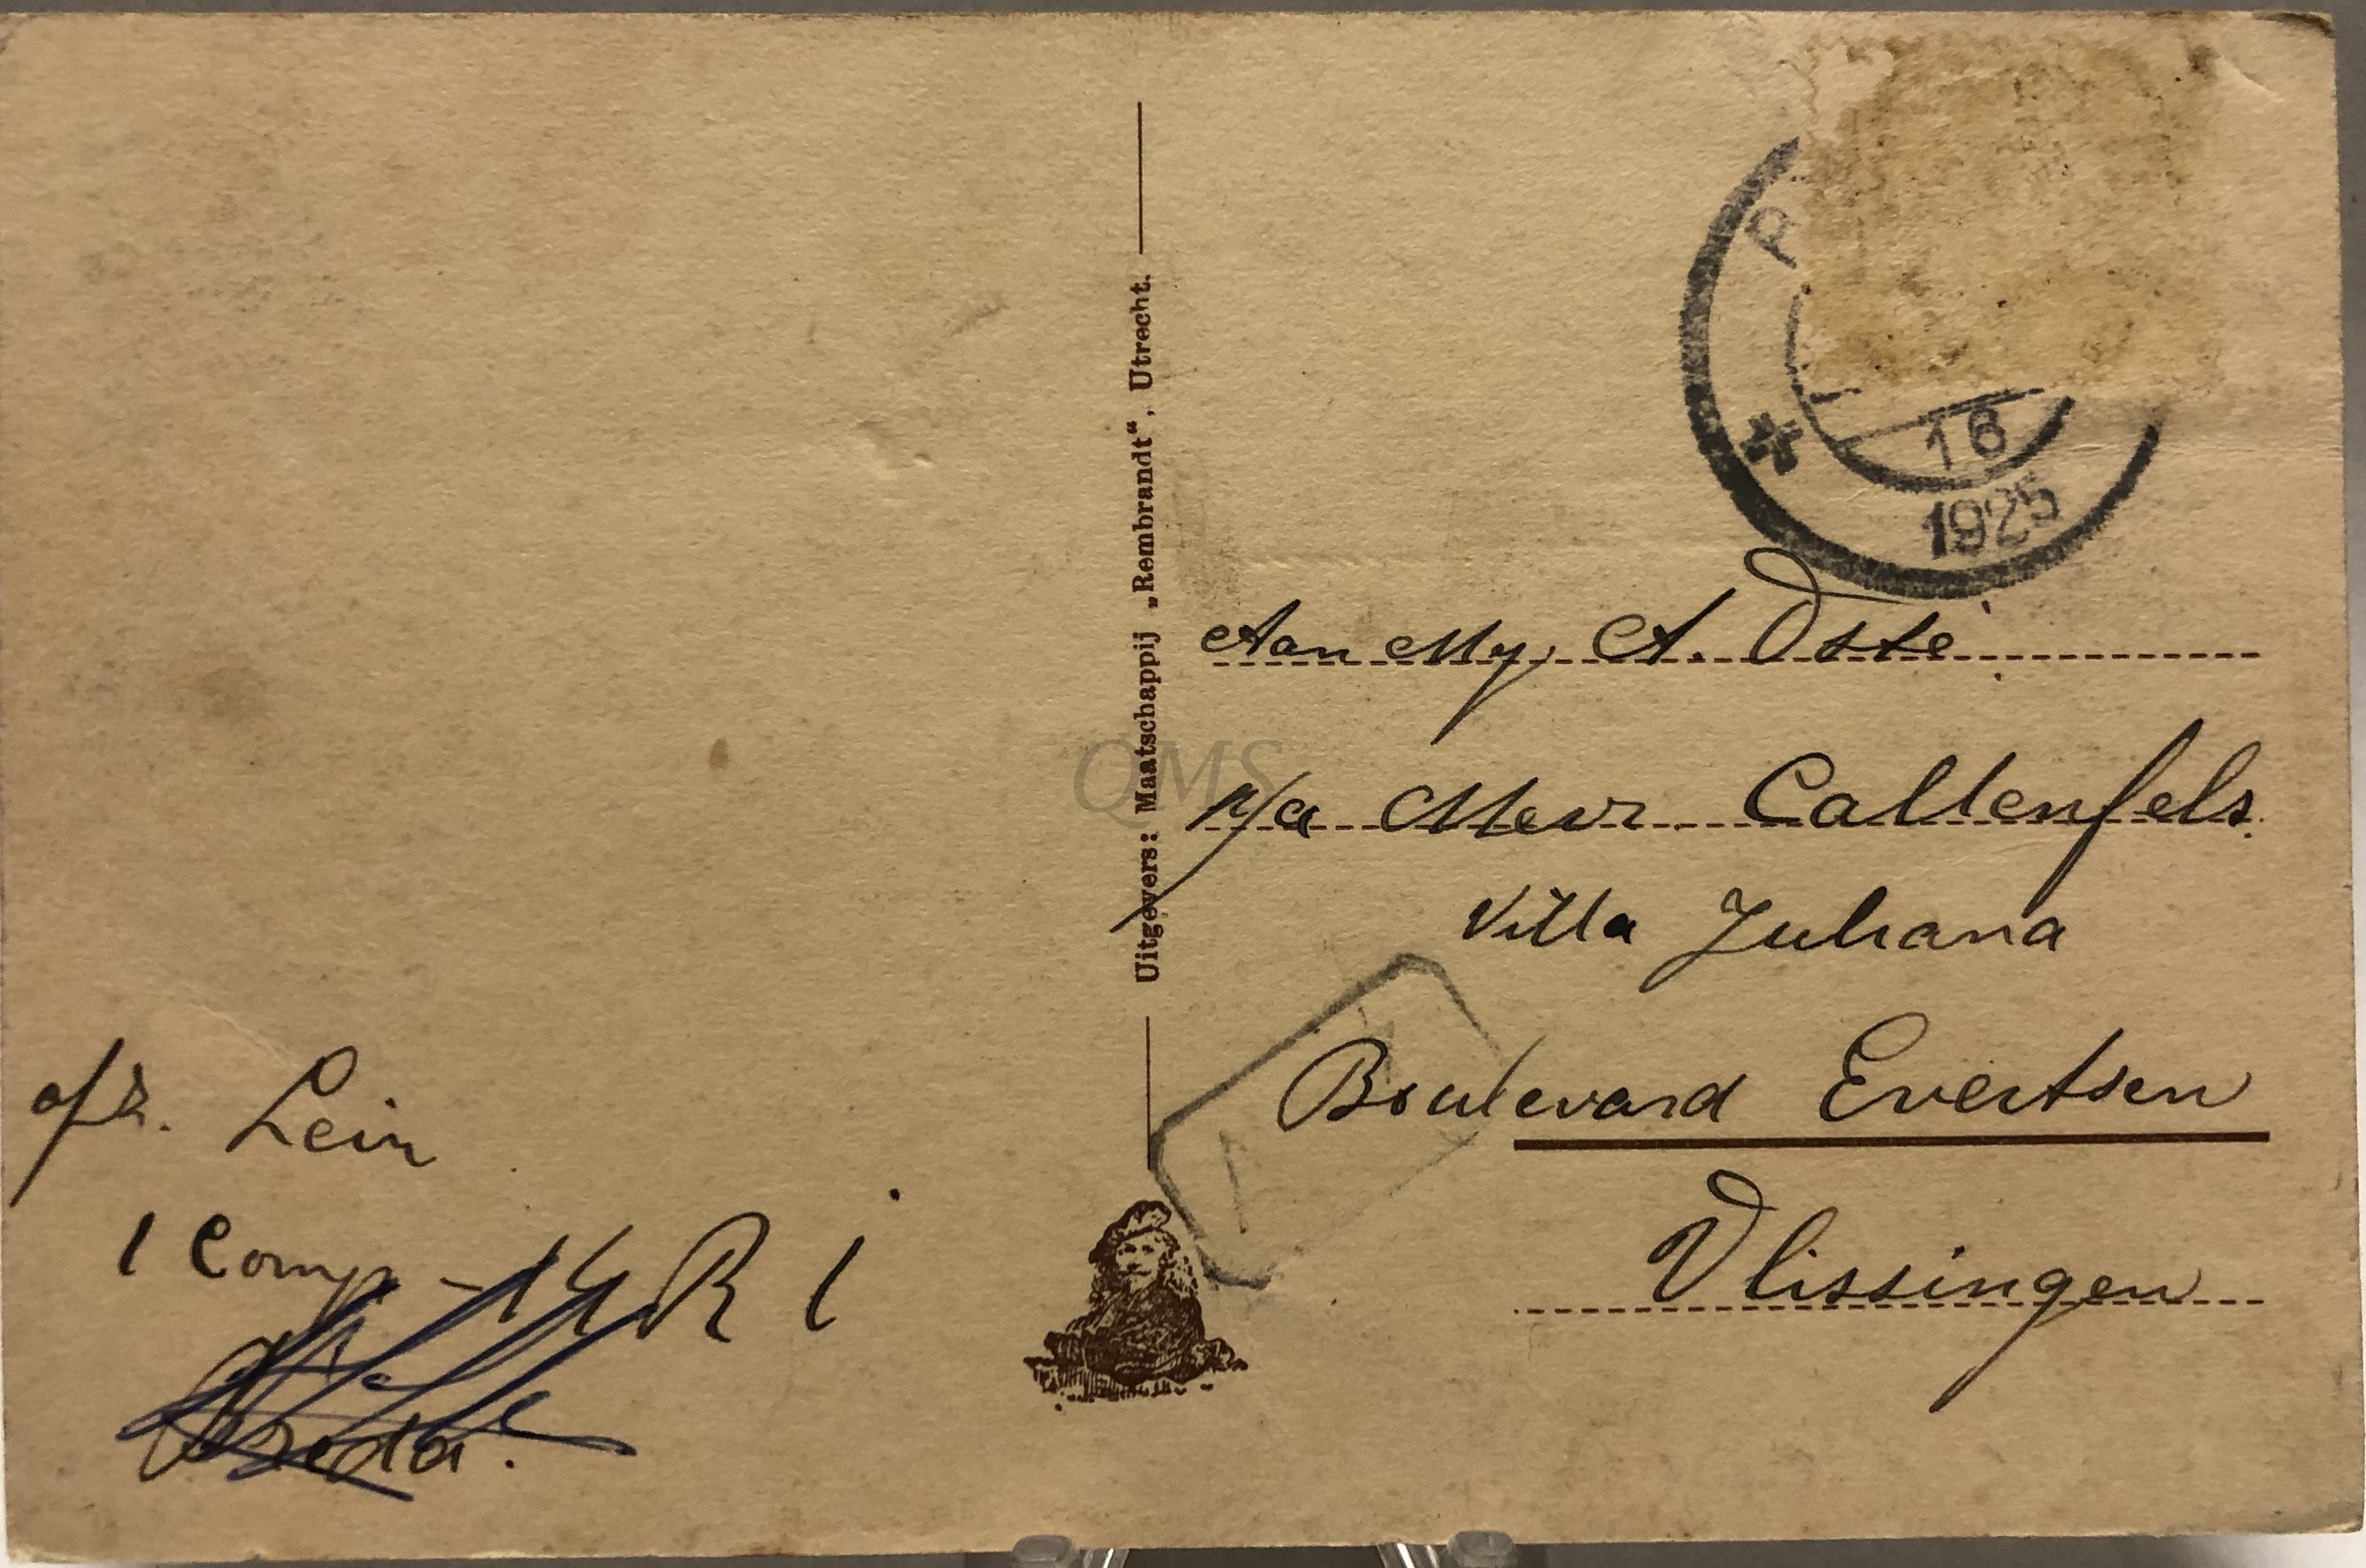 afz. Lein
1 Comp - 14 R i
Breda.
Uitgevers: Maatschappij „Rembrandt“, Utrecht.
R
16
1925
Aan Mej. A. Osté
p/a Mevr. Callenfels.
Villa Juliana
Boulevard Evertsen
Vlissingen
QMS